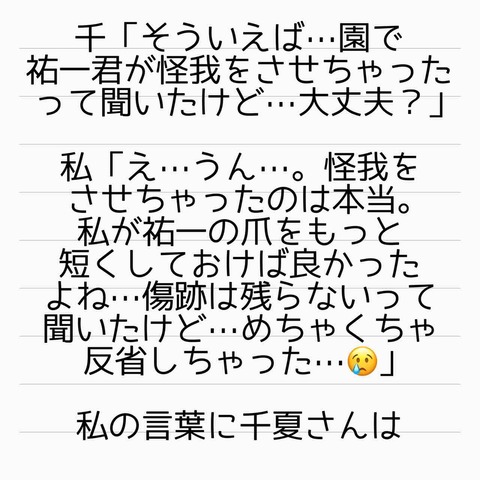 千「そういえば…園で
祐一君が怪我をさせちゃった
って聞いたけど…大丈夫？」
私「え…うん…。怪我を
させちゃったのは本当。
私が祐一の爪をもっと
短くしておけば良かった
よね…傷跡は残らないって
聞いたけど…めちゃくちゃ
反省しちゃった…😢」
私の言葉に千夏さんは